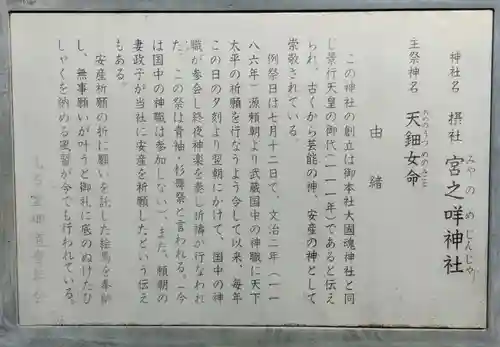 神社名 摂社 宮之咩神社
みやのめじんじゃ
主祭神名 天鈿女命
あめのうづめのみこと
由緒
この神社の創立は御本社大國魂神社と同
じ景行天皇の御代(一一一年)であると伝え
られ、古くから芸能の神、安産の神として
崇敬されている。
例祭日は七月十二日で、文治二年(一一
八六年)源頼朝より武蔵国中の神職に天下
太平の祈願を行なうよう令して以来、毎年
この日の夕刻より翌朝にかけて、国中の神
職が参会し終夜神楽を奏し祈祷が行なわれ
た。この祭は青袖・杉舞祭と言われる。(今
は国中の神職は参加しない)、また、頼朝の
妻政子が当社に安産を祈願したという伝え
もある。
安産祈願の折に願いを託した絵馬を奉納
し、無事願いが叶うと御礼に底のぬけたひ
しゃくを納める風習が今でも行われている。